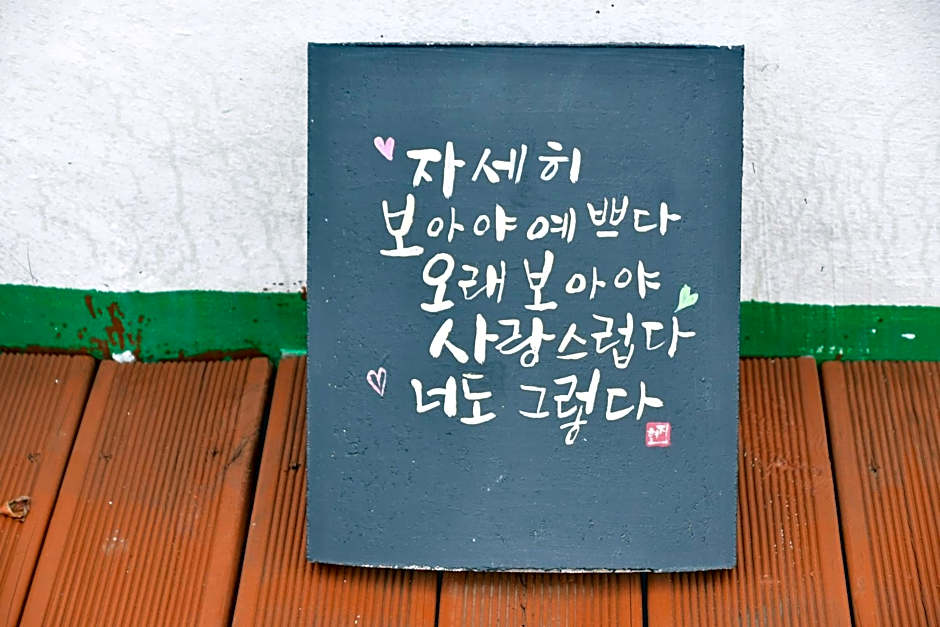 자세히
보아야 예쁘다
오래 보아야
사랑스럽다
너도 그렇다